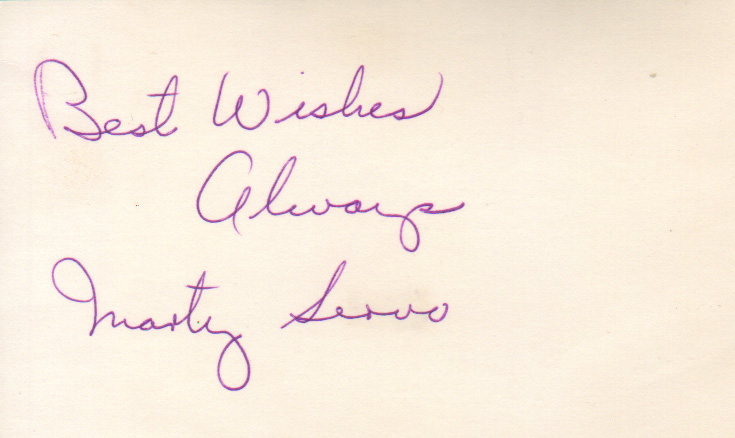 Best Wishes
Always
Marty Servo